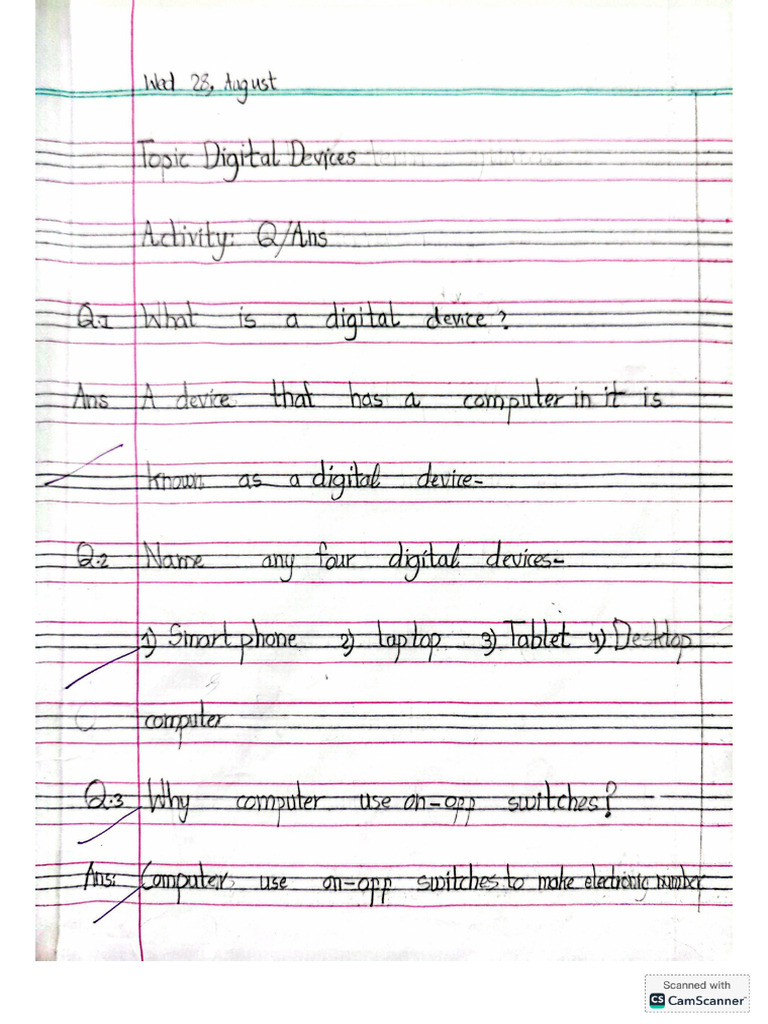 Wed 28, August
Topic Digital Devices
Activity: Q/Ans
Q.1 What is a digital device?
Ans A device that has a computer in it is
known as a digital device-
Q.2 Name any four digital devices-
1) Smart phone 2) laptop 3) Tablet 4) Desktop
computer
Q.3 Why computer use on-opp switches?
Ans: Computers use on-opp switches to make electronic number
Scanned with
CS CamScanner